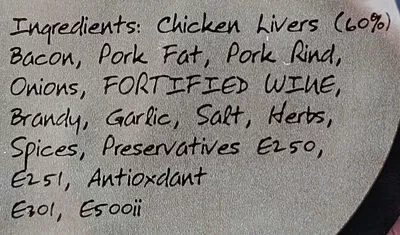 Ingredients: Chicken Livers (60%)
Bacon, Pork Fat, Pork Rind,
Onions, FORTIFIED WINE,
Brandy, Garlic, Salt, Herbs,
Spices, Preservatives E250,
E251, Antioxdant
E301, E500ii